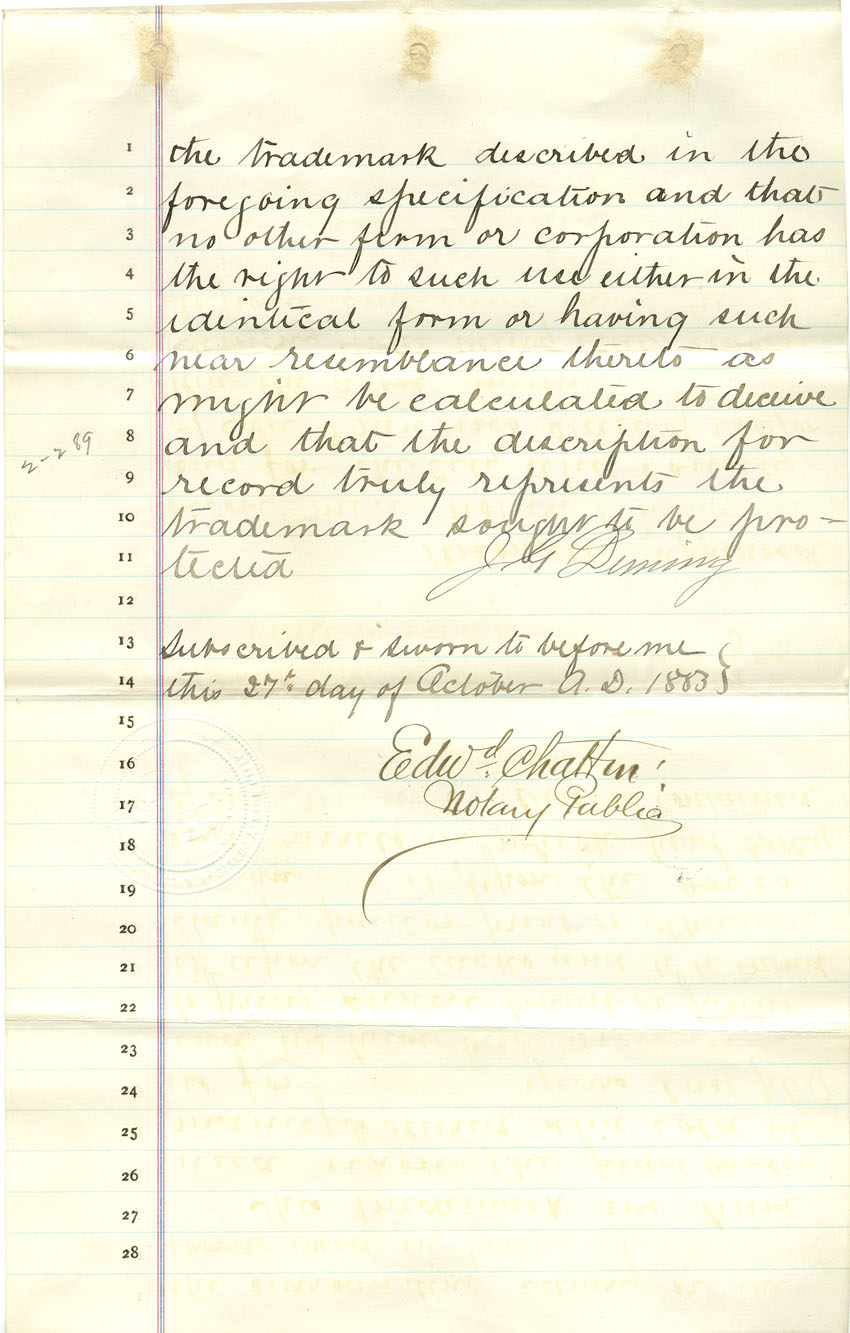 1 the trademark described in the
2 foregoing specification and that
3 no other firm or corporation has
4 the right to such use either in the
5 identical form or having such
6 near resemblance thereto as
7 might be calculated to deceive
2-2 89
8 and that the description for
9 record truly represents the
10 trademark sought to be pro-
11 tected J. G. Deming
12
13 Subscribed & sworn to before me
14 this 27th day of October A.D. 1883
15
16 Edwd. Chatten
17 Notary Public
18
19
20
21
22
23
24
25
26
27
28